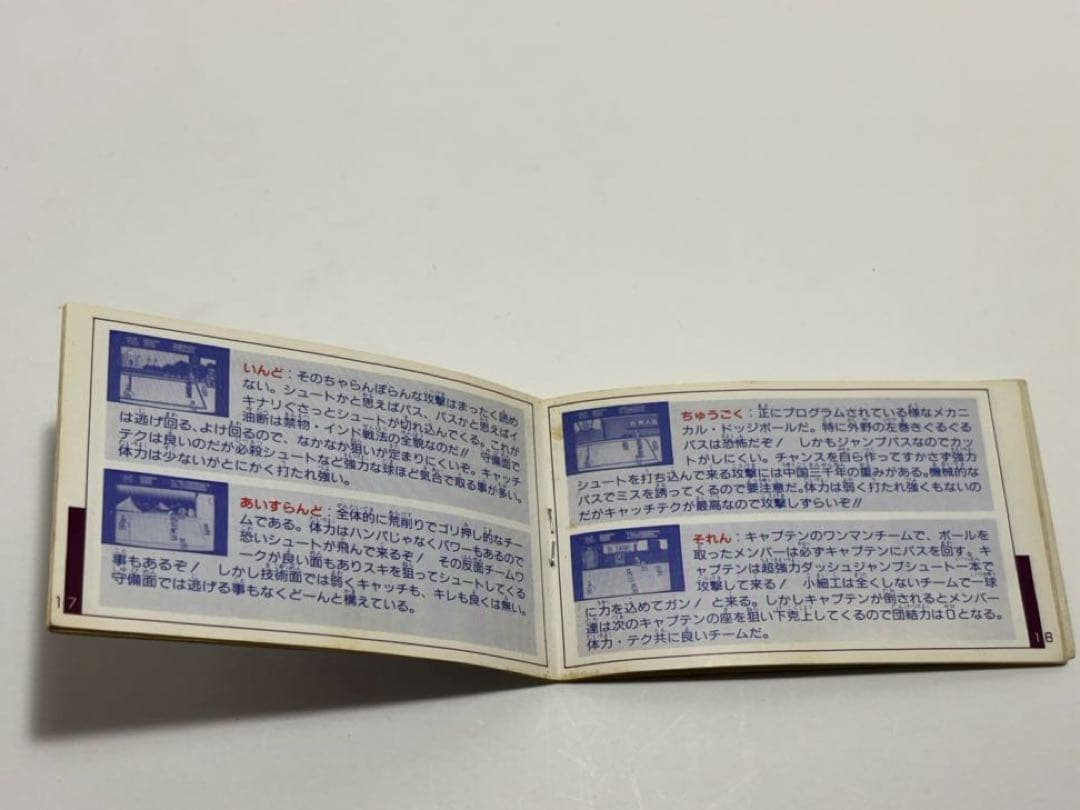 いんど：そのちゃらんぽらんな攻撃はまったく読め
ない。シュートかと思えばパス、パスかと思えばイ
キナリぐさっとシュートが切れ込んでくる。これが
油断は禁物・インド戦法の全貌なのだ!! 守備面で
は逃げ回る、よけ回るので、なかなか狙いが定まりにくいぞ。キャッチ
テクは良いのだが必殺シュートなど強力な球ほど気合で取る事が多い。
体力は少ないがとにかく打たれ強い。
あいすらんど：全体的に荒削りでゴリ押し的なチー
ムである。体力はハンパじゃなくパワーもあるので
恐いシュートが飛んで来るぞ! その反面チームワ
ークが良い面もありスキを狙ってシュートしてくる
事もあるぞ! しかし技術面では弱くキャッチも、キレも良くは無い。
守備面では逃げる事もなくどーんと構えている。
17
ちゅうごく：正にプログラムされている様なメカニ
カル・ドッジボールだ。特に外野の左巻きぐるぐる
パスは恐怖だぞ! しかもジャンプパスなのでカッ
トがしにくい。チャンスを自ら作ってすかさず強力
シュートを打ち込んで来る攻撃には中国三千年の重みがある。機械的な
パスでミスを誘ってくるので要注意だ。体力は弱く打たれ強くもないの
だがキャッチテクが最高なので攻撃しずらいぞ!!
それん：キャプテンのワンマンチームで、ボールを
取ったメンバーは必ずキャプテンにパスを回す。キ
ャプテンは超強力ダッシュジャンプシュート一本で
攻撃して来る! 小細工は全くしないチームで一球
に力を込めてガン! と来る。しかしキャプテンが倒されるとメンバー
達は次のキャプテンの座を狙い下克上してくるので団結力は0となる。
体力・テク共に良いチームだ。
18